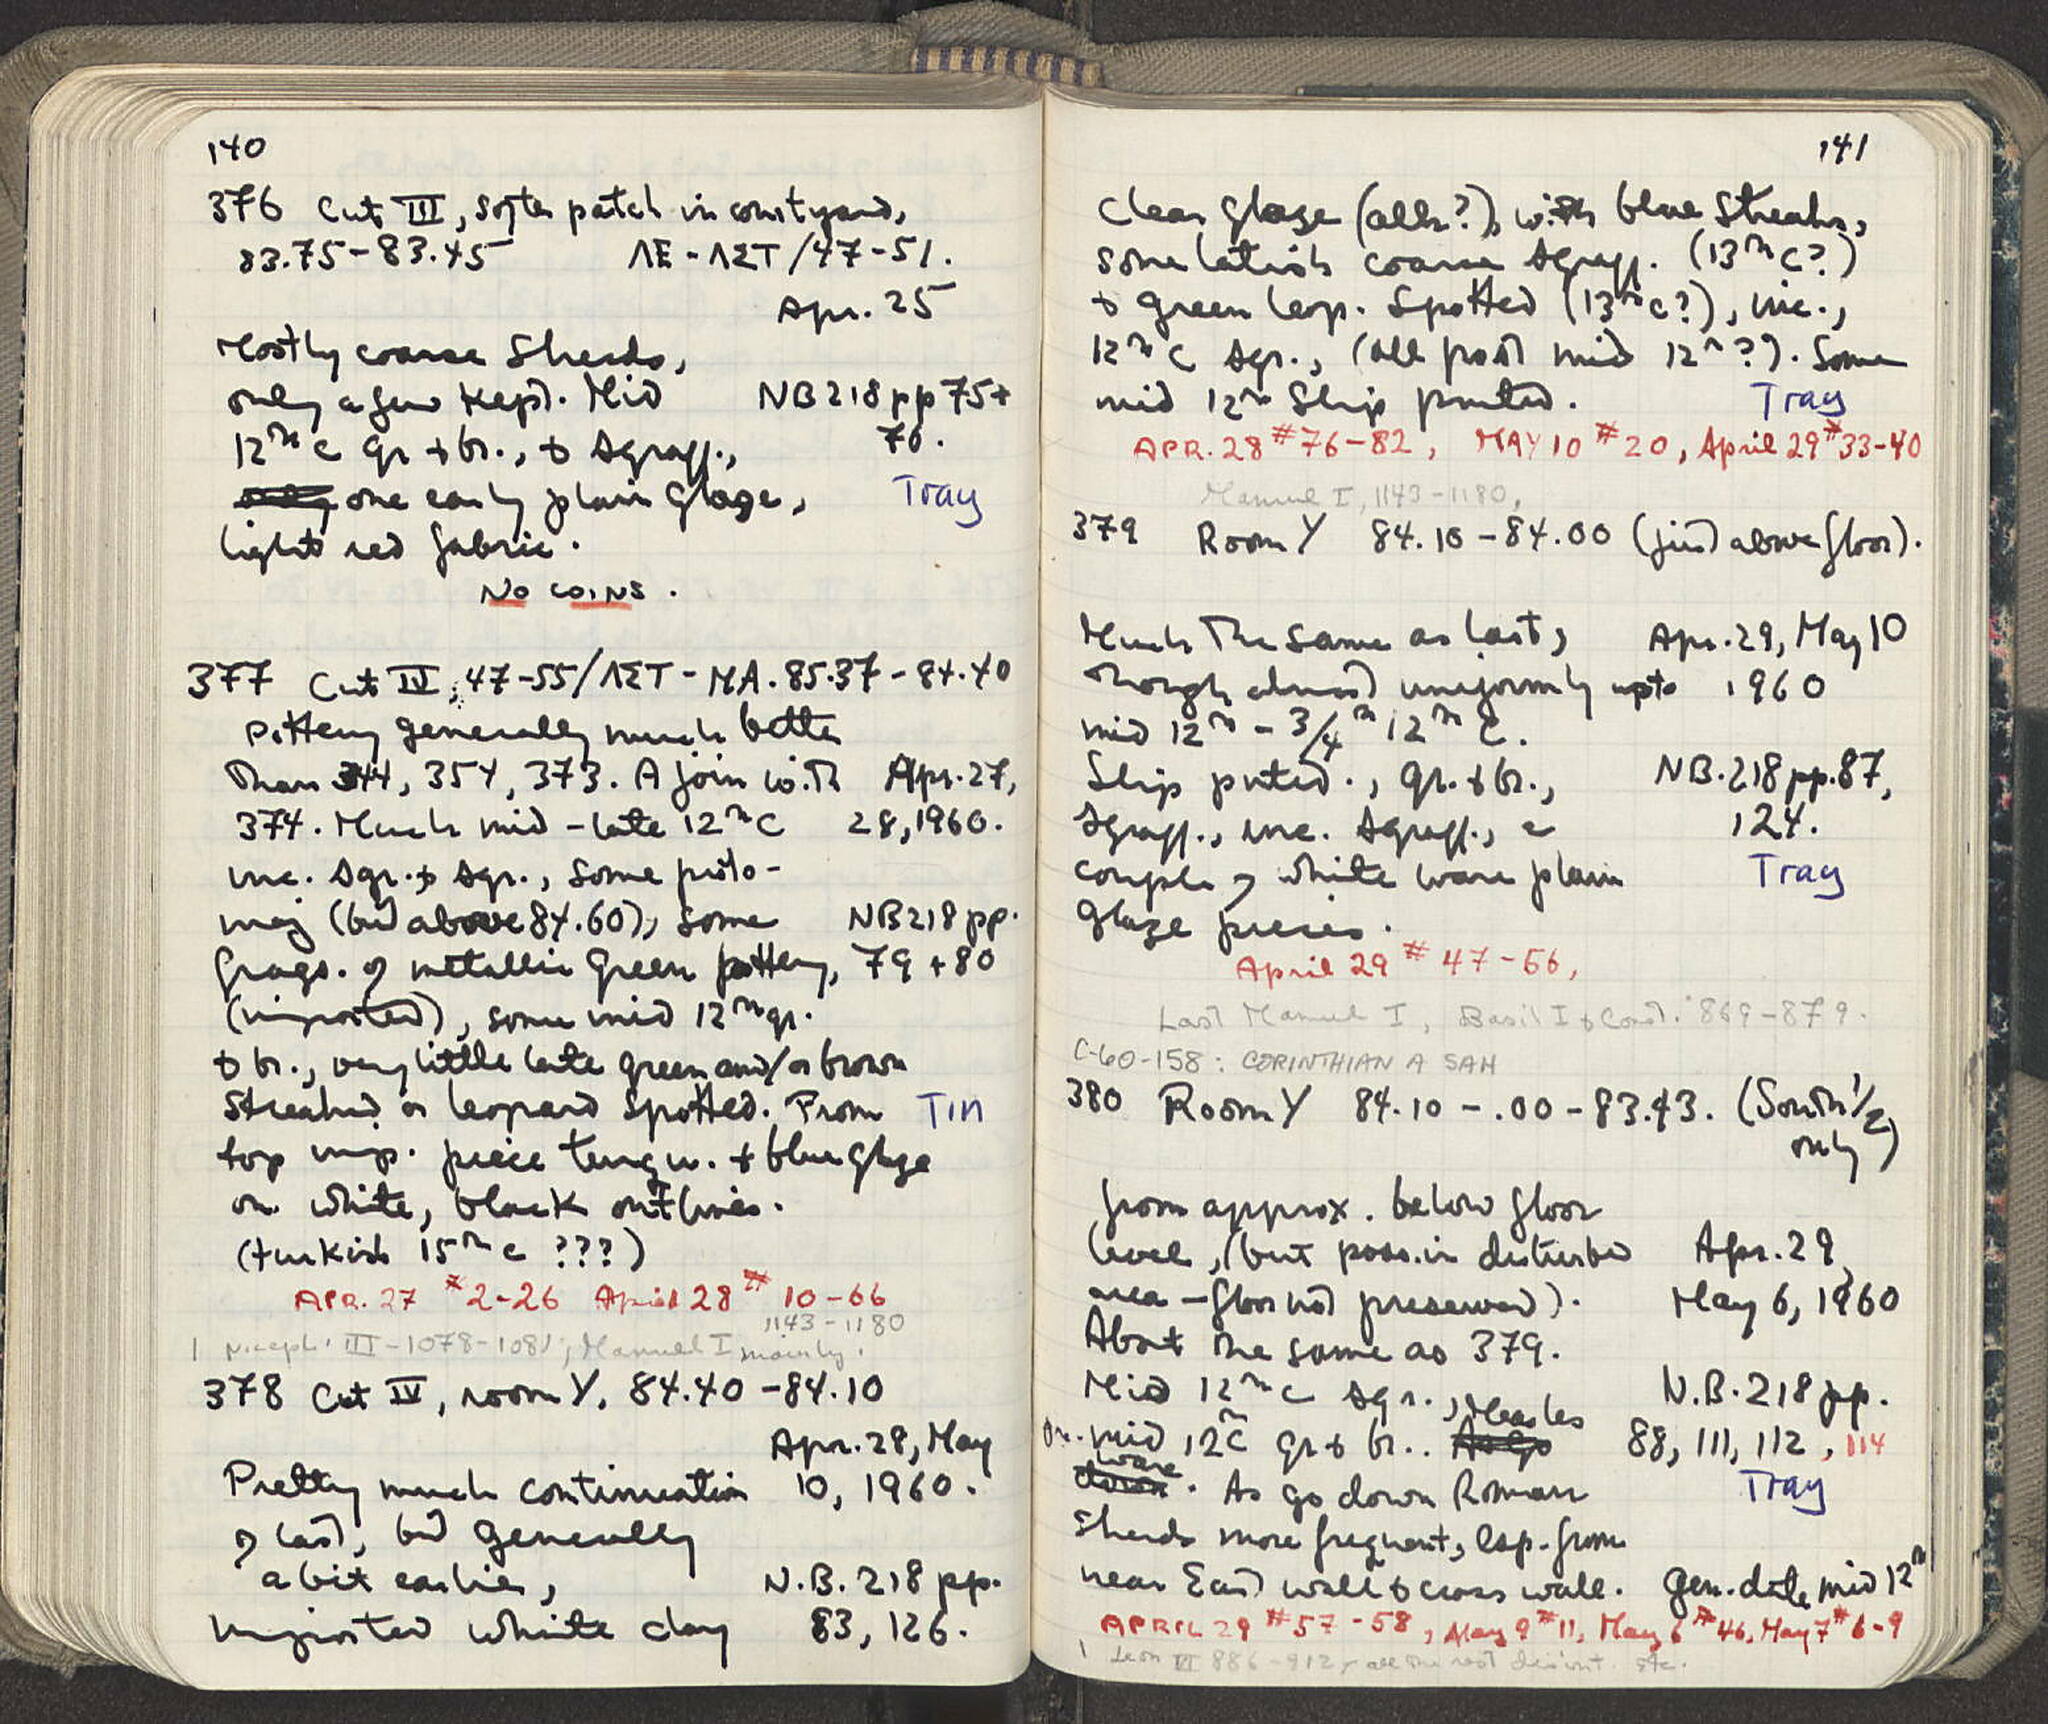 140
376 Cut III, softer patch in courtyard,
83.75-83.45 ΛΕ-ΛΣΤ/47-51.
Apr. 25
Mostly coarse sherds,
only a few kept. Mid NB 218 pp 75+
12th c gr + br., + sgraff., 70.
one early plain glaze, Tray
light red fabric.
NO COINS.
377 Cut IV, 47-55/ΛΣΤ-ΜΑ. 85.37-84.40
Pottery generally much better
than 344, 354, 373. A join with Apr. 27,
374. Much mid-late 12th C 28, 1960.
inc. sgr. + sgr., some proto-
maj (but above 84.60), some NB 218 pp.
frags. of metallic green pottery, 79 + 80
(imported), some mid 12th gr.
+ br., very little late green and/or brown
streaked or leopard spotted. From Tin
top imp. piece turqu. + blue glaze
on white, black outlines.
(turkish 15th c ???)
APR. 27 #2-26 April 28 #10-66
1143-1180
1 Niceph. III-1078-1081; Manuel I mainly.
378 Cut IV, room Y, 84.40-84.10
Apr. 28, May
Pretty much continuation 10, 1960.
of last, but generally
a bit earlier, N.B. 218 pp.
imported white clay 83, 126.
141
clear glaze (all?), with blue streaks,
some latish coarse sgraff. (13th C?)
+ green leop. spotted (13th c?), inc.,
12th C sgr., (all post mid 12th?). Some
mid 12th slip painted. Tray
APR. 28 #76-82, MAY 10 #20, April 29 #33-40
Manuel I, 1143-1180,
379 Room Y 84.10-84.00 (just above floor).
Much the same as last, Apr. 29, May 10
though almost uniformly up to 1960
mid 12th - 3/4th 12th C.
Slip pnted., gr. + br., NB. 218 pp. 87,
sgraff., inc. sgraff., a 124.
couple of white ware plain Tray
glaze pieces.
April 29 #47-56,
Last Manuel I, Basil I + Const. 869-879.
C-60-158: CORINTHIAN A SAH
380 Room Y 84.10-.00-83.43. (South 1/2
only)
from approx. below floor
level, (but poss. in disturbed Apr. 29,
area - floor not preserved). May 6, 1960
About the same as 379.
Mid 12th c sgr., Measles N.B. 218 pp.
mid 12th C gr + br.. 88, 111, 112, 114
ware. As go down Roman Tray
sherds more frequent, esp. from
near East wall + cross wall. Gen. date mid 12th
APRIL 29 #57-58, May 9 #11, May 6 #46, May 7 #6-9
1 Leon VI 886-912, all the rest disint. etc.